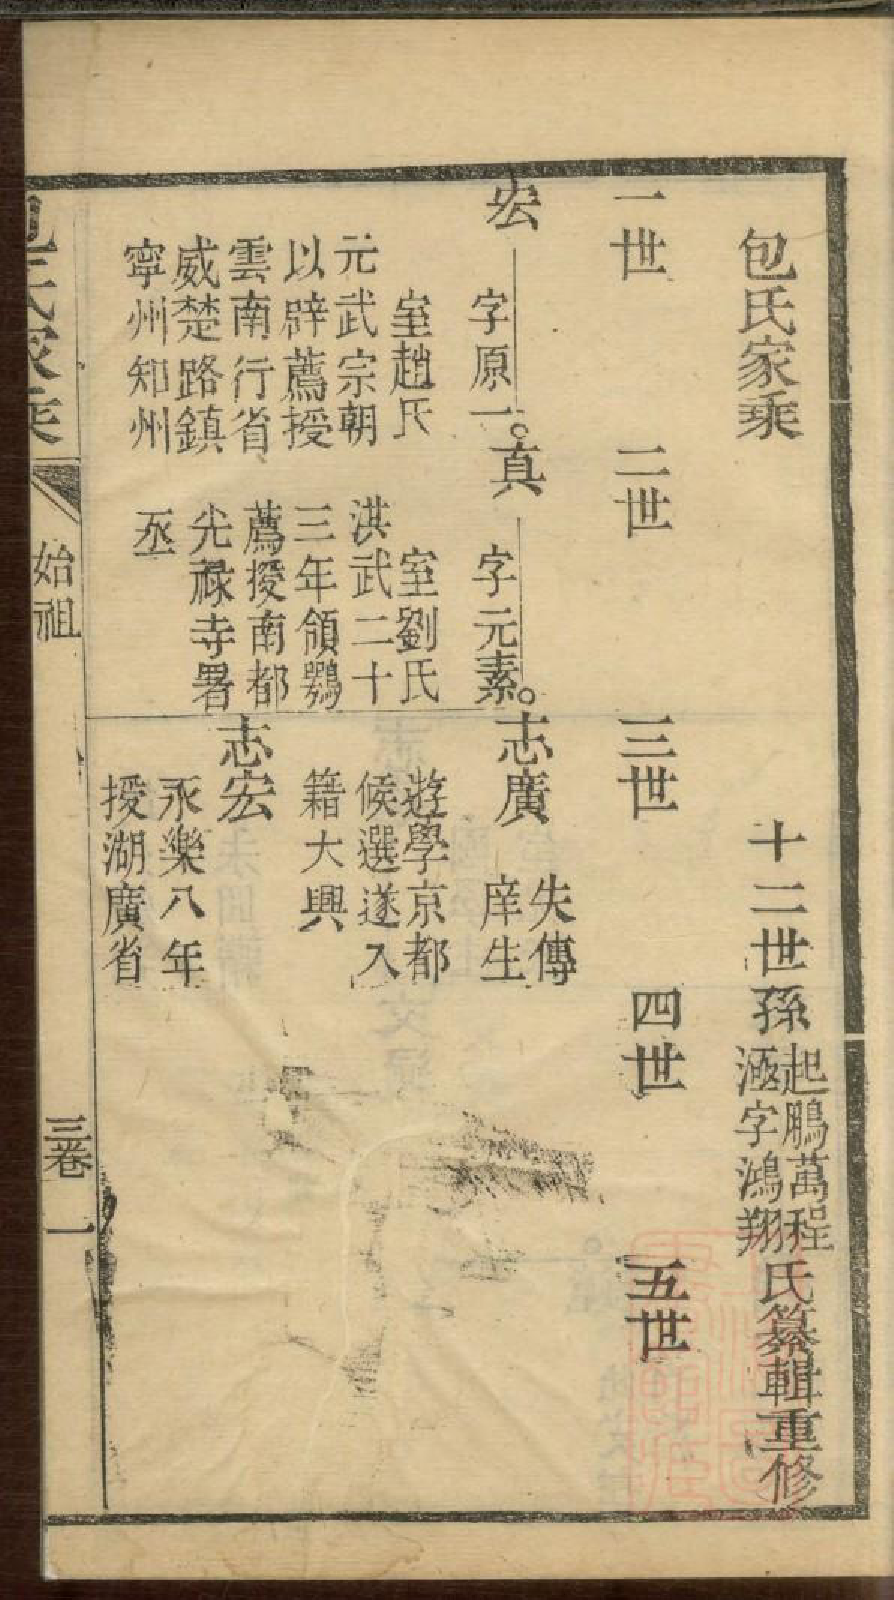 包氏家乘
十二世孫
起鵬萬程
涵字鴻翔
氏纂輯重修
一世
二世
三世
四世
五世
宏
字原一
室趙氏
元武宗朝
以辟薦授
雲南行省
威楚路鎮
寧州知州
真
字元素
室劉氏
洪武二十
三年領鶚
薦授南都
光祿寺署
丞
志廣
失傳
庠生
遊學京都
候選遂入
籍大興
志宏
永樂八年
授湖廣省
包氏家乘
始祖
三卷
一